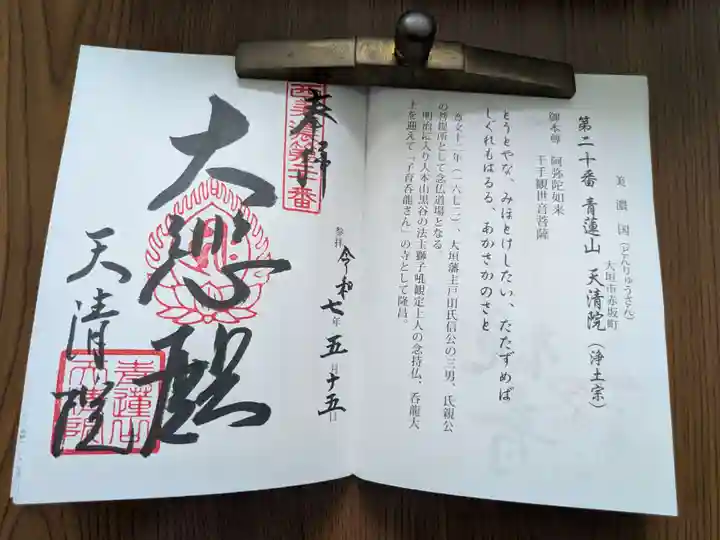 美濃国(どんりゅうさん)
大垣市赤坂町
第二十番 青蓮山 天清院(浄土宗)
御本尊 阿弥陀如来
千手観世音菩薩
とうとやな、みほとけしたい、たたずめば
しぐれもはるる、あかさかのさと
寛文十一年(一六七二)、大垣藩主戸田氏信公の三男、氏親公
の菩提所として念仏道場となる。
明治に入り大本山黒谷の法主獅子吼観定上人の念持仏、呑龍大
上を迎えて「子育呑龍さん」の寺として隆昌。
西美濃第二十番
奉拝
参拝 令和七年五月十五日
大悲殿
天清院
青蓮山
天清院